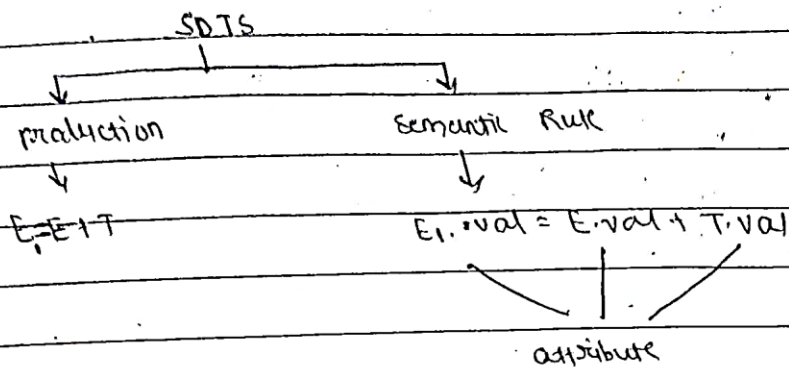 SDTS
production Semantic Rule
E₁=E+T E₁.val = E.val + T.val
attribute